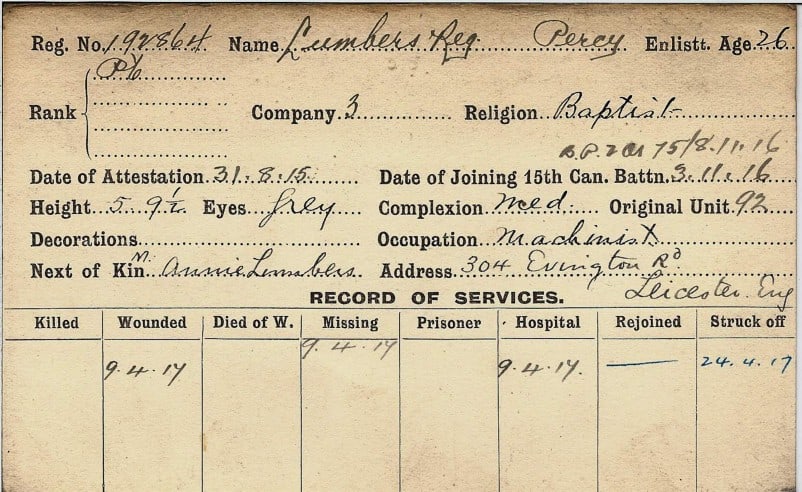 Reg. No. 192864 Name Lumbers Reg Percy Enlistt. Age 26
Pte
Rank Company 3 Religion Baptist
75/8.11.16
Date of Attestation 31.8.15 Date of Joining 15th Can. Battn. 3.11.16
Height 5 9½ Eyes Grey Complexion Med Original Unit 92
Decorations Occupation Machinist
Next of Kin M Annie Lumbers Address 304 Evington Rd
Leicester Eng
RECORD OF SERVICES.
Killed Wounded Died of W. Missing Prisoner Hospital Rejoined Struck off
9.4.17
9.4.17 9.4.17. — 24.4.17